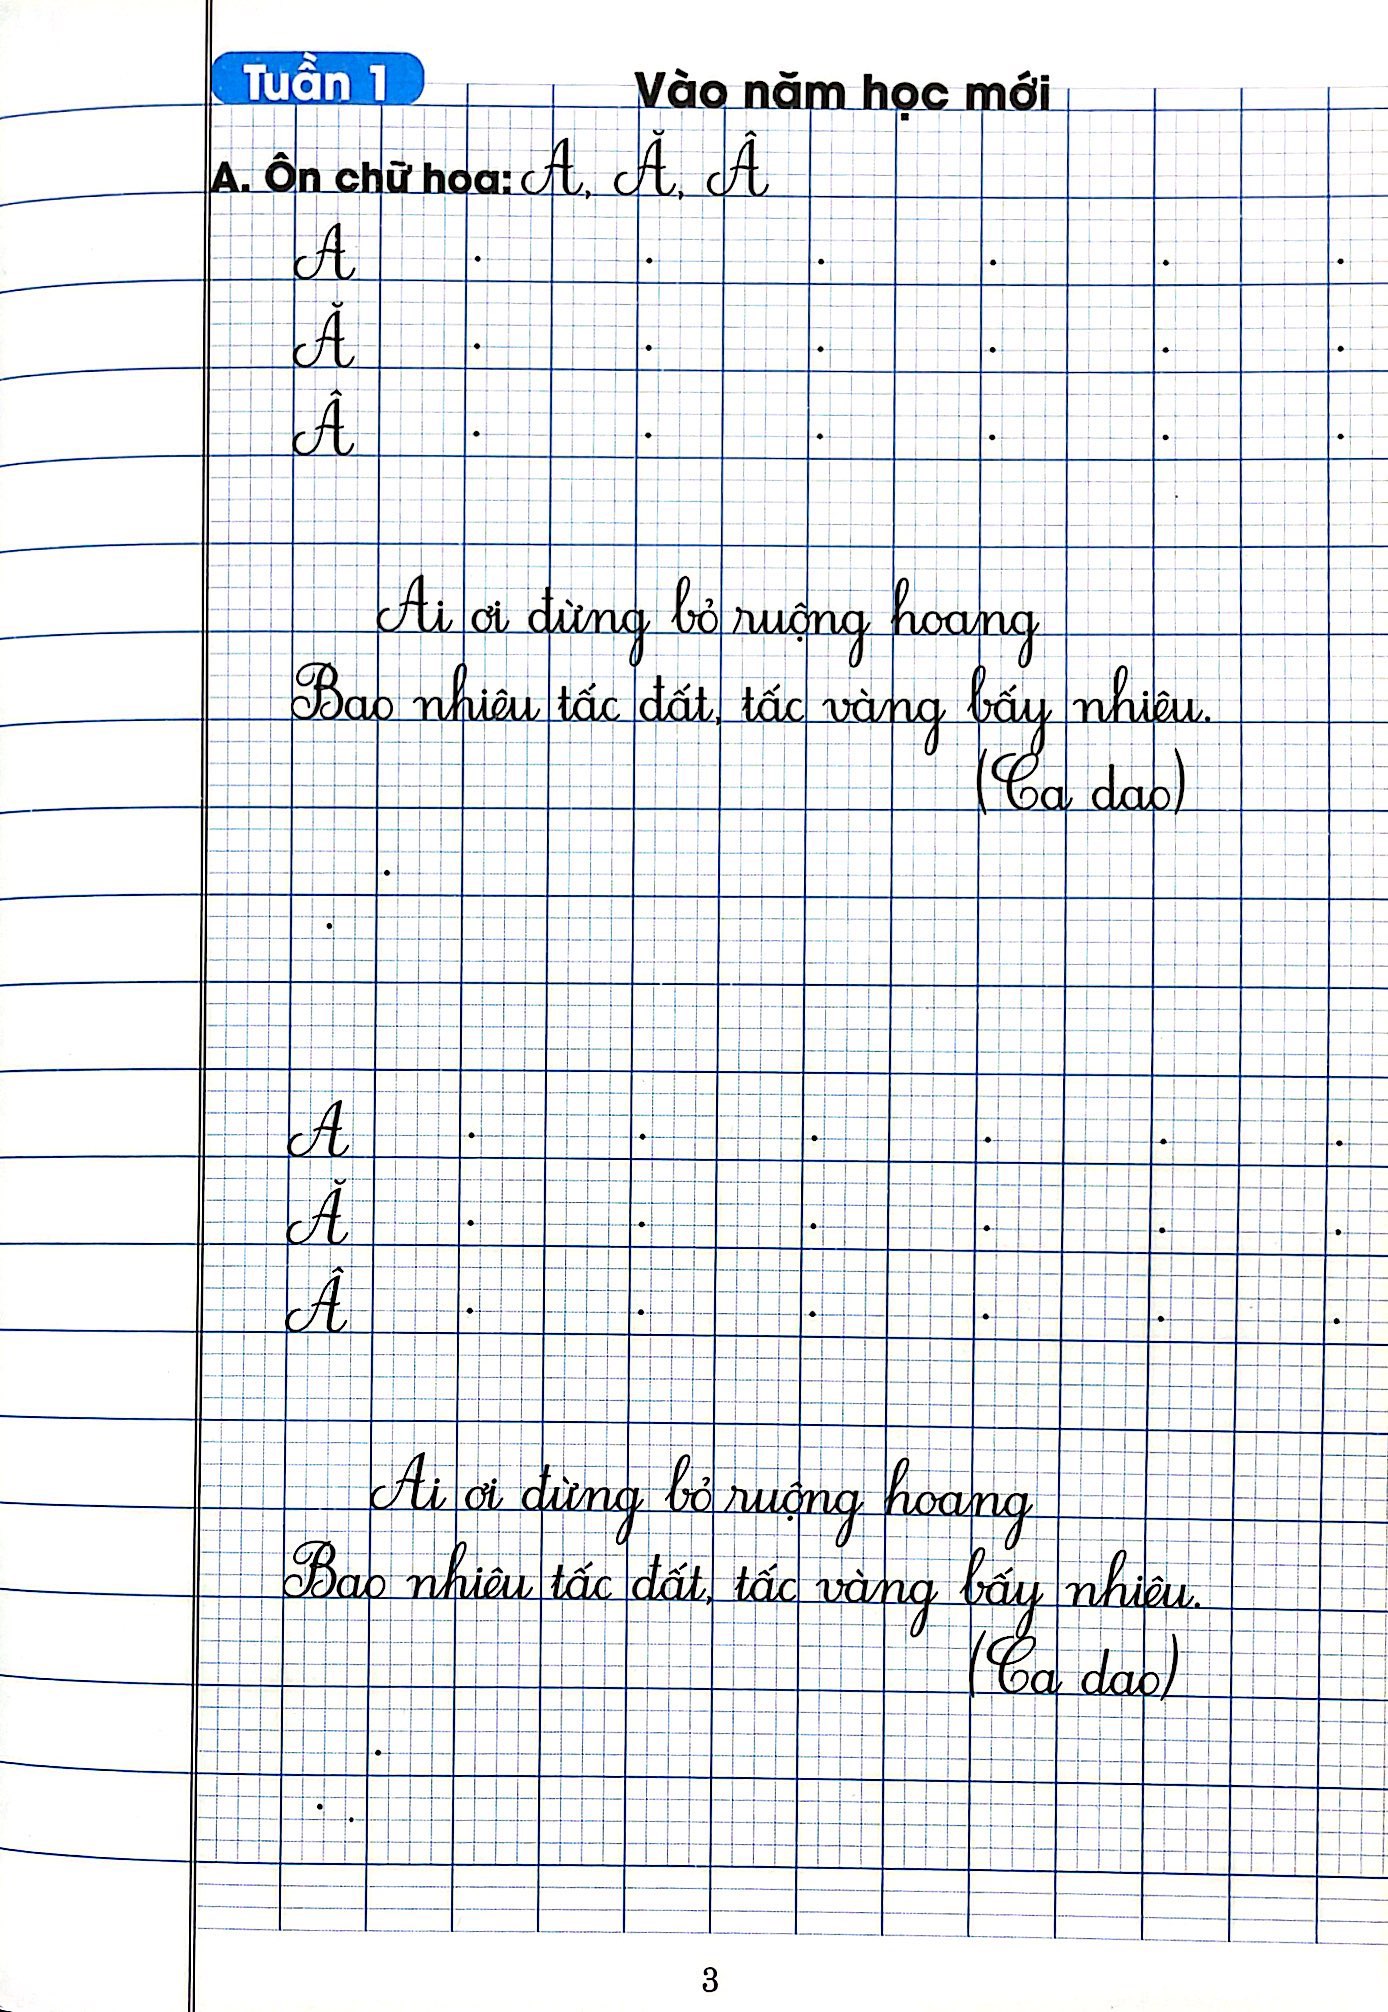 Tuần 1
Vào năm học mới
A. Ôn chữ hoa: A, Ă, Â
A
Ă
Â
Ai ơi đừng bỏ ruộng hoang
Bao nhiêu tấc đất, tấc vàng bấy nhiêu.
(Ca dao)
A
Ă
Â
Ai ơi đừng bỏ ruộng hoang
Bao nhiêu tấc đất, tấc vàng bấy nhiêu.
(Ca dao)
3